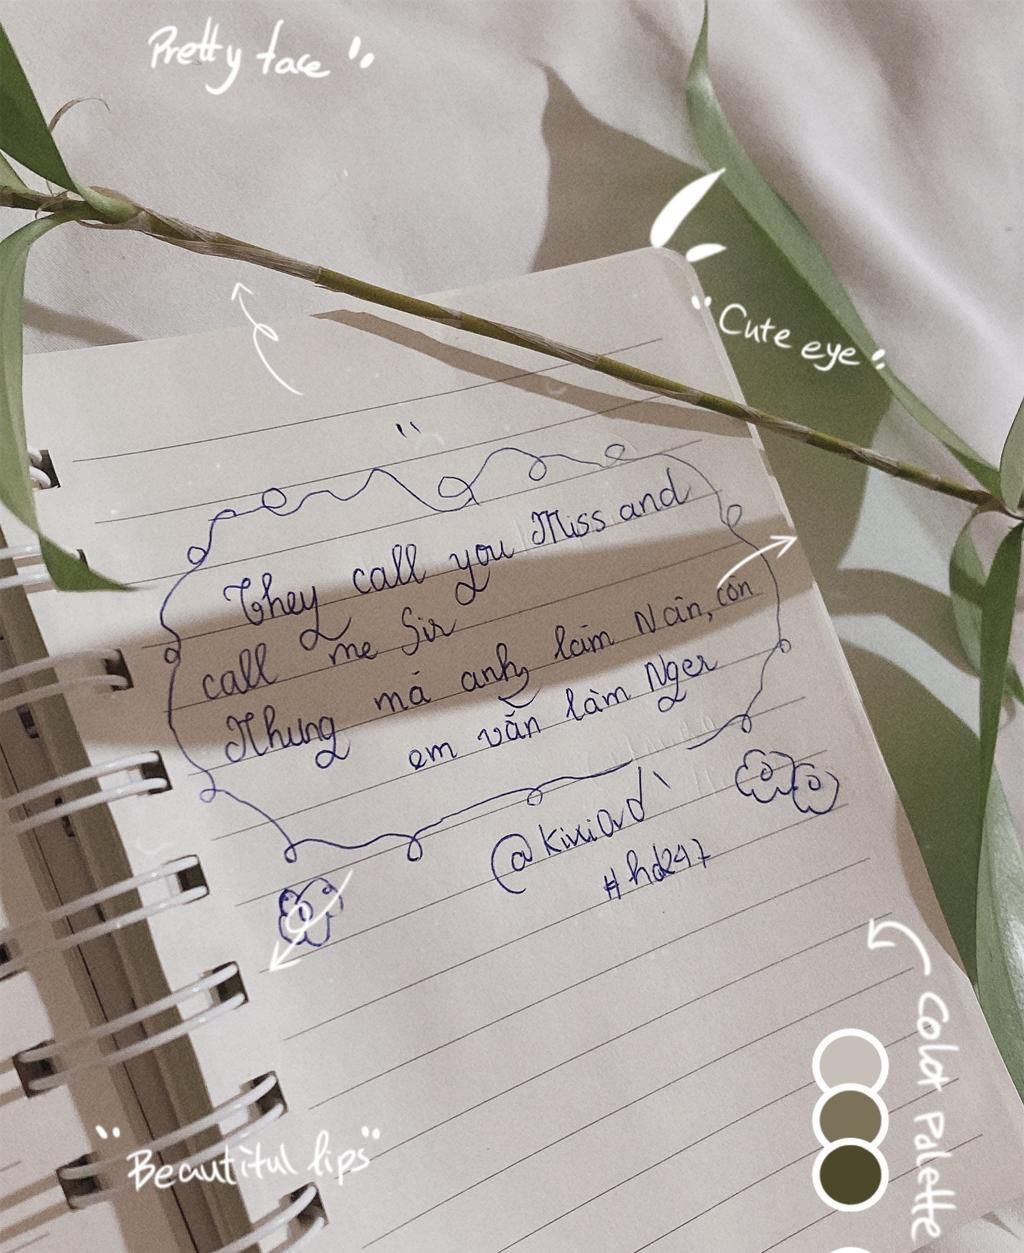 Pretty face
"Cute eye"
They call you Miss and
call me Sir
Nhưng mà anh làm Nân, còn
em vẫn làm Nger
@KiviOvd
#hd247
Color Palette
"Beautiful lips"